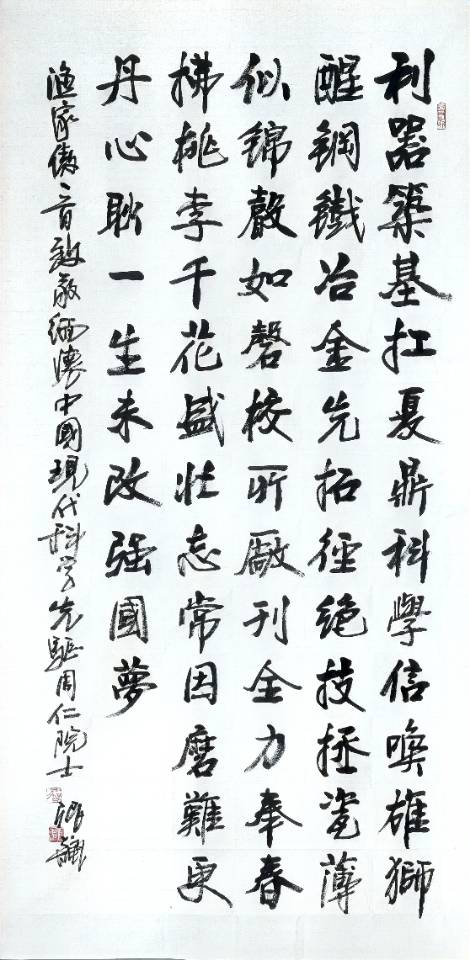 利器築基扛夏鼎科學信喚雄獅
醒鋼鐵冶金先拓徑絕技拯瓷薄
似錦聲如磬校所廠刊全力奉春
拂桃李千花盛壯志常因磨難更
丹心耿一生未改强國夢
漁家傲一首致敬緬懷中國現代科学先驅周仁院士